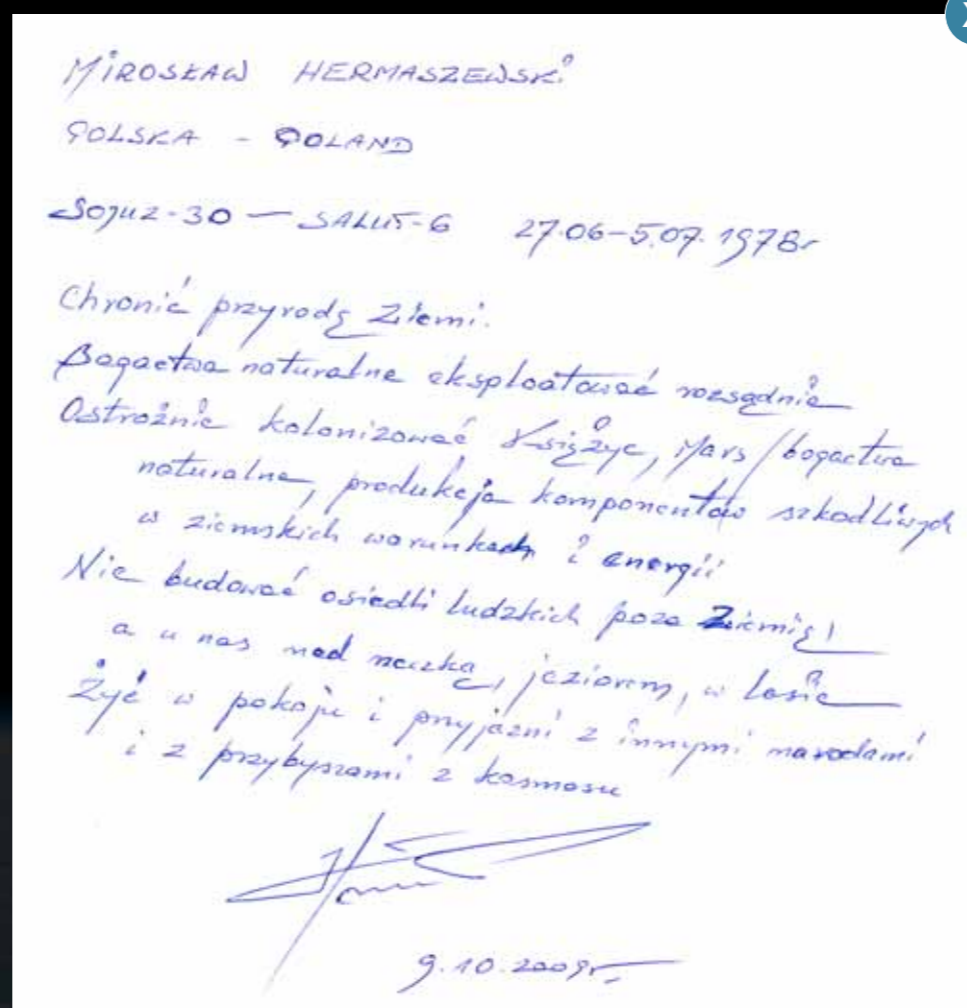 MIROSŁAW HERMASZEWSKI
POLSKA - POLAND
SOJUZ-30 — SALUT-6 27.06-5.07.1978r
Chronić przyrodę Ziemi.
Bogactwa naturalne eksploatować rozsądnie
Ostrożnie kolonizować Księżyc, Mars/bogactwa
naturalne, produkcja komponentów szkodliwych
w ziemskich warunkach i energii
Nie budować osiedli ludzkich poza Ziemią!
a u nas nad rzeczką, jeziorem, w lesie
Żyć w pokoju i przyjaźni z innymi narodami
i z przybyszami z kosmosu
9.10.2009r.